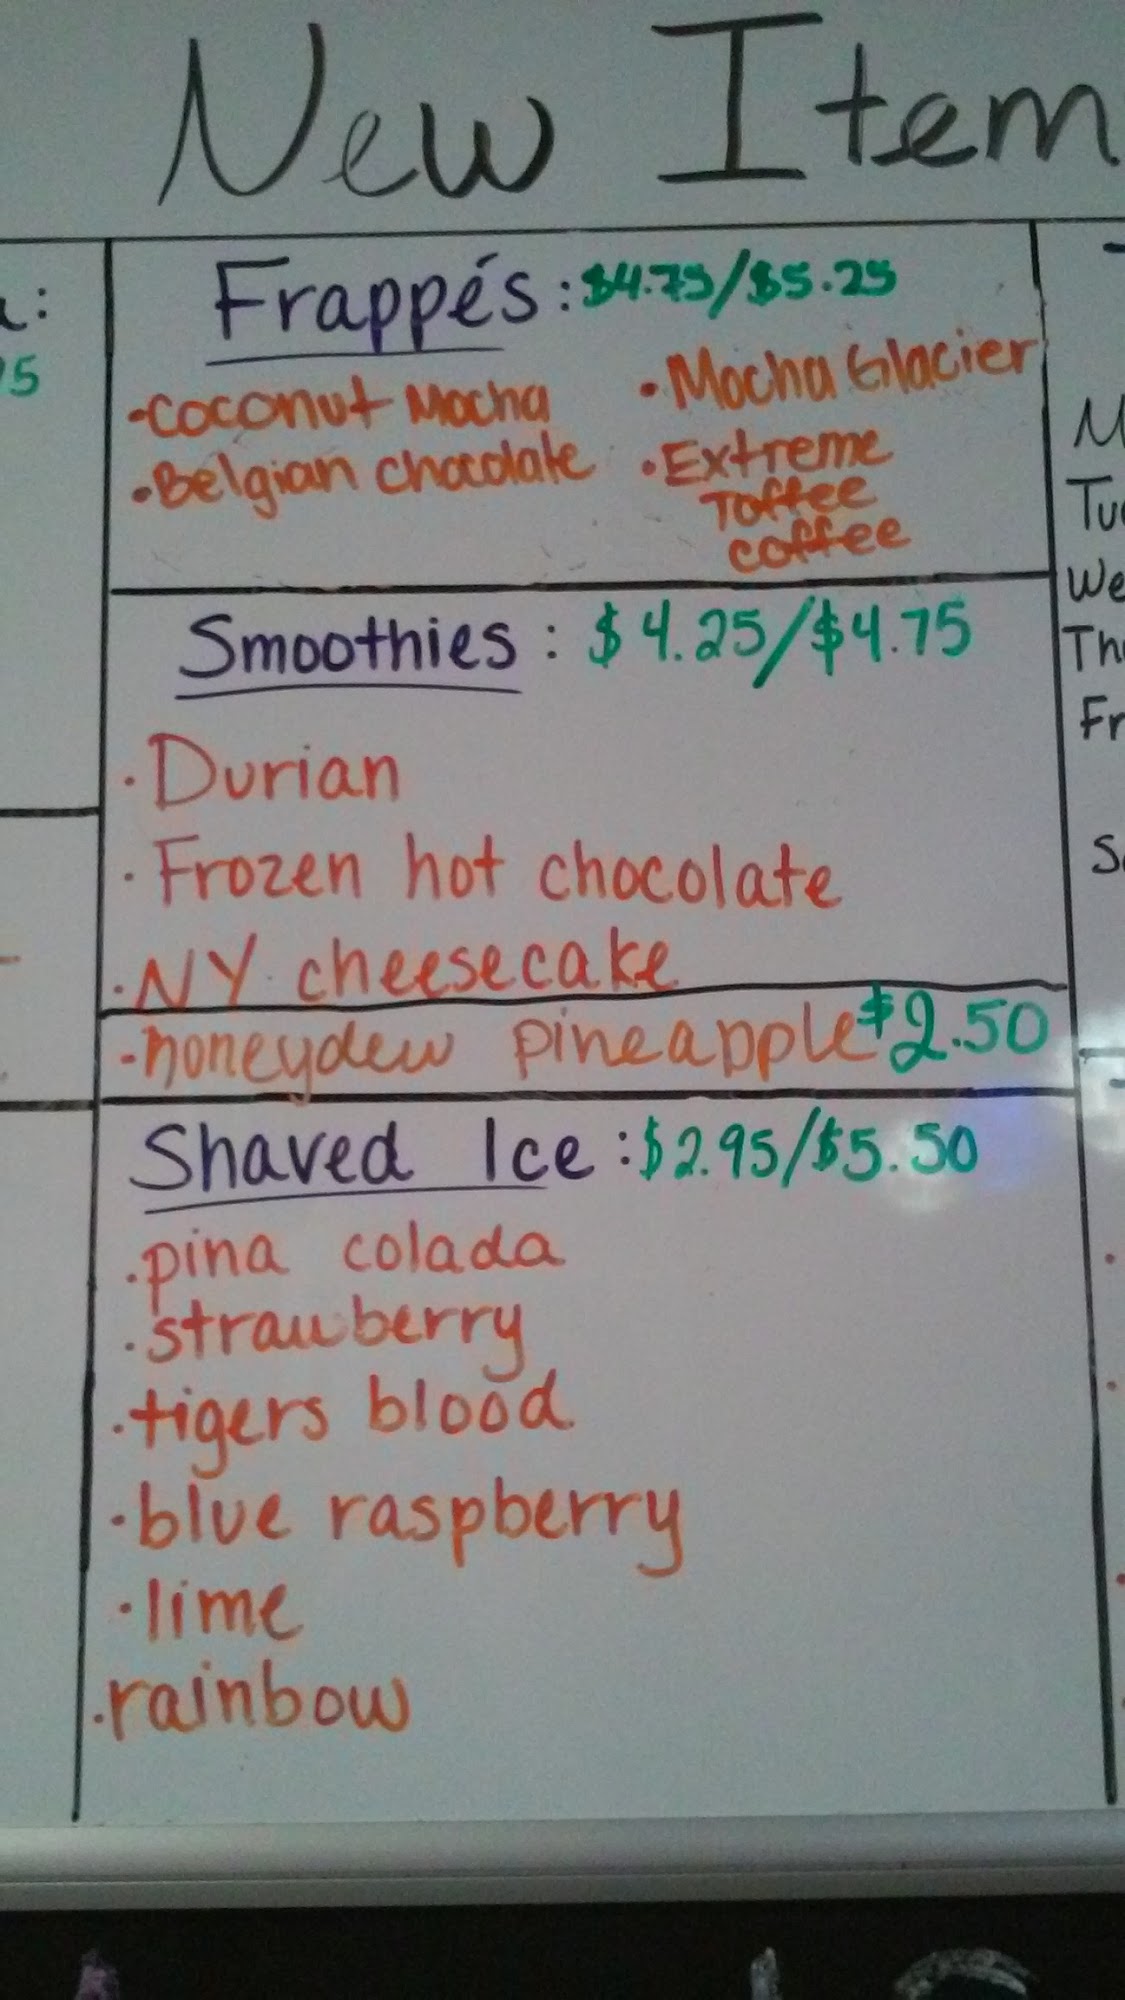 New Item
Frappés: $4.75/$5.25
•Coconut Mocha
•Belgian chocolate
•Mocha Glacier
•Extreme
Toffee
coffee
Smoothies: $4.25/$4.75
·Durian
·Frozen hot chocolate
·NY cheesecake
-honeydew pineapple $2.50
Shaved Ice: $2.95/$5.50
·pina colada
·strawberry
·tigers blood
·blue raspberry
·lime
·rainbow
Tu
We
Th
Fr